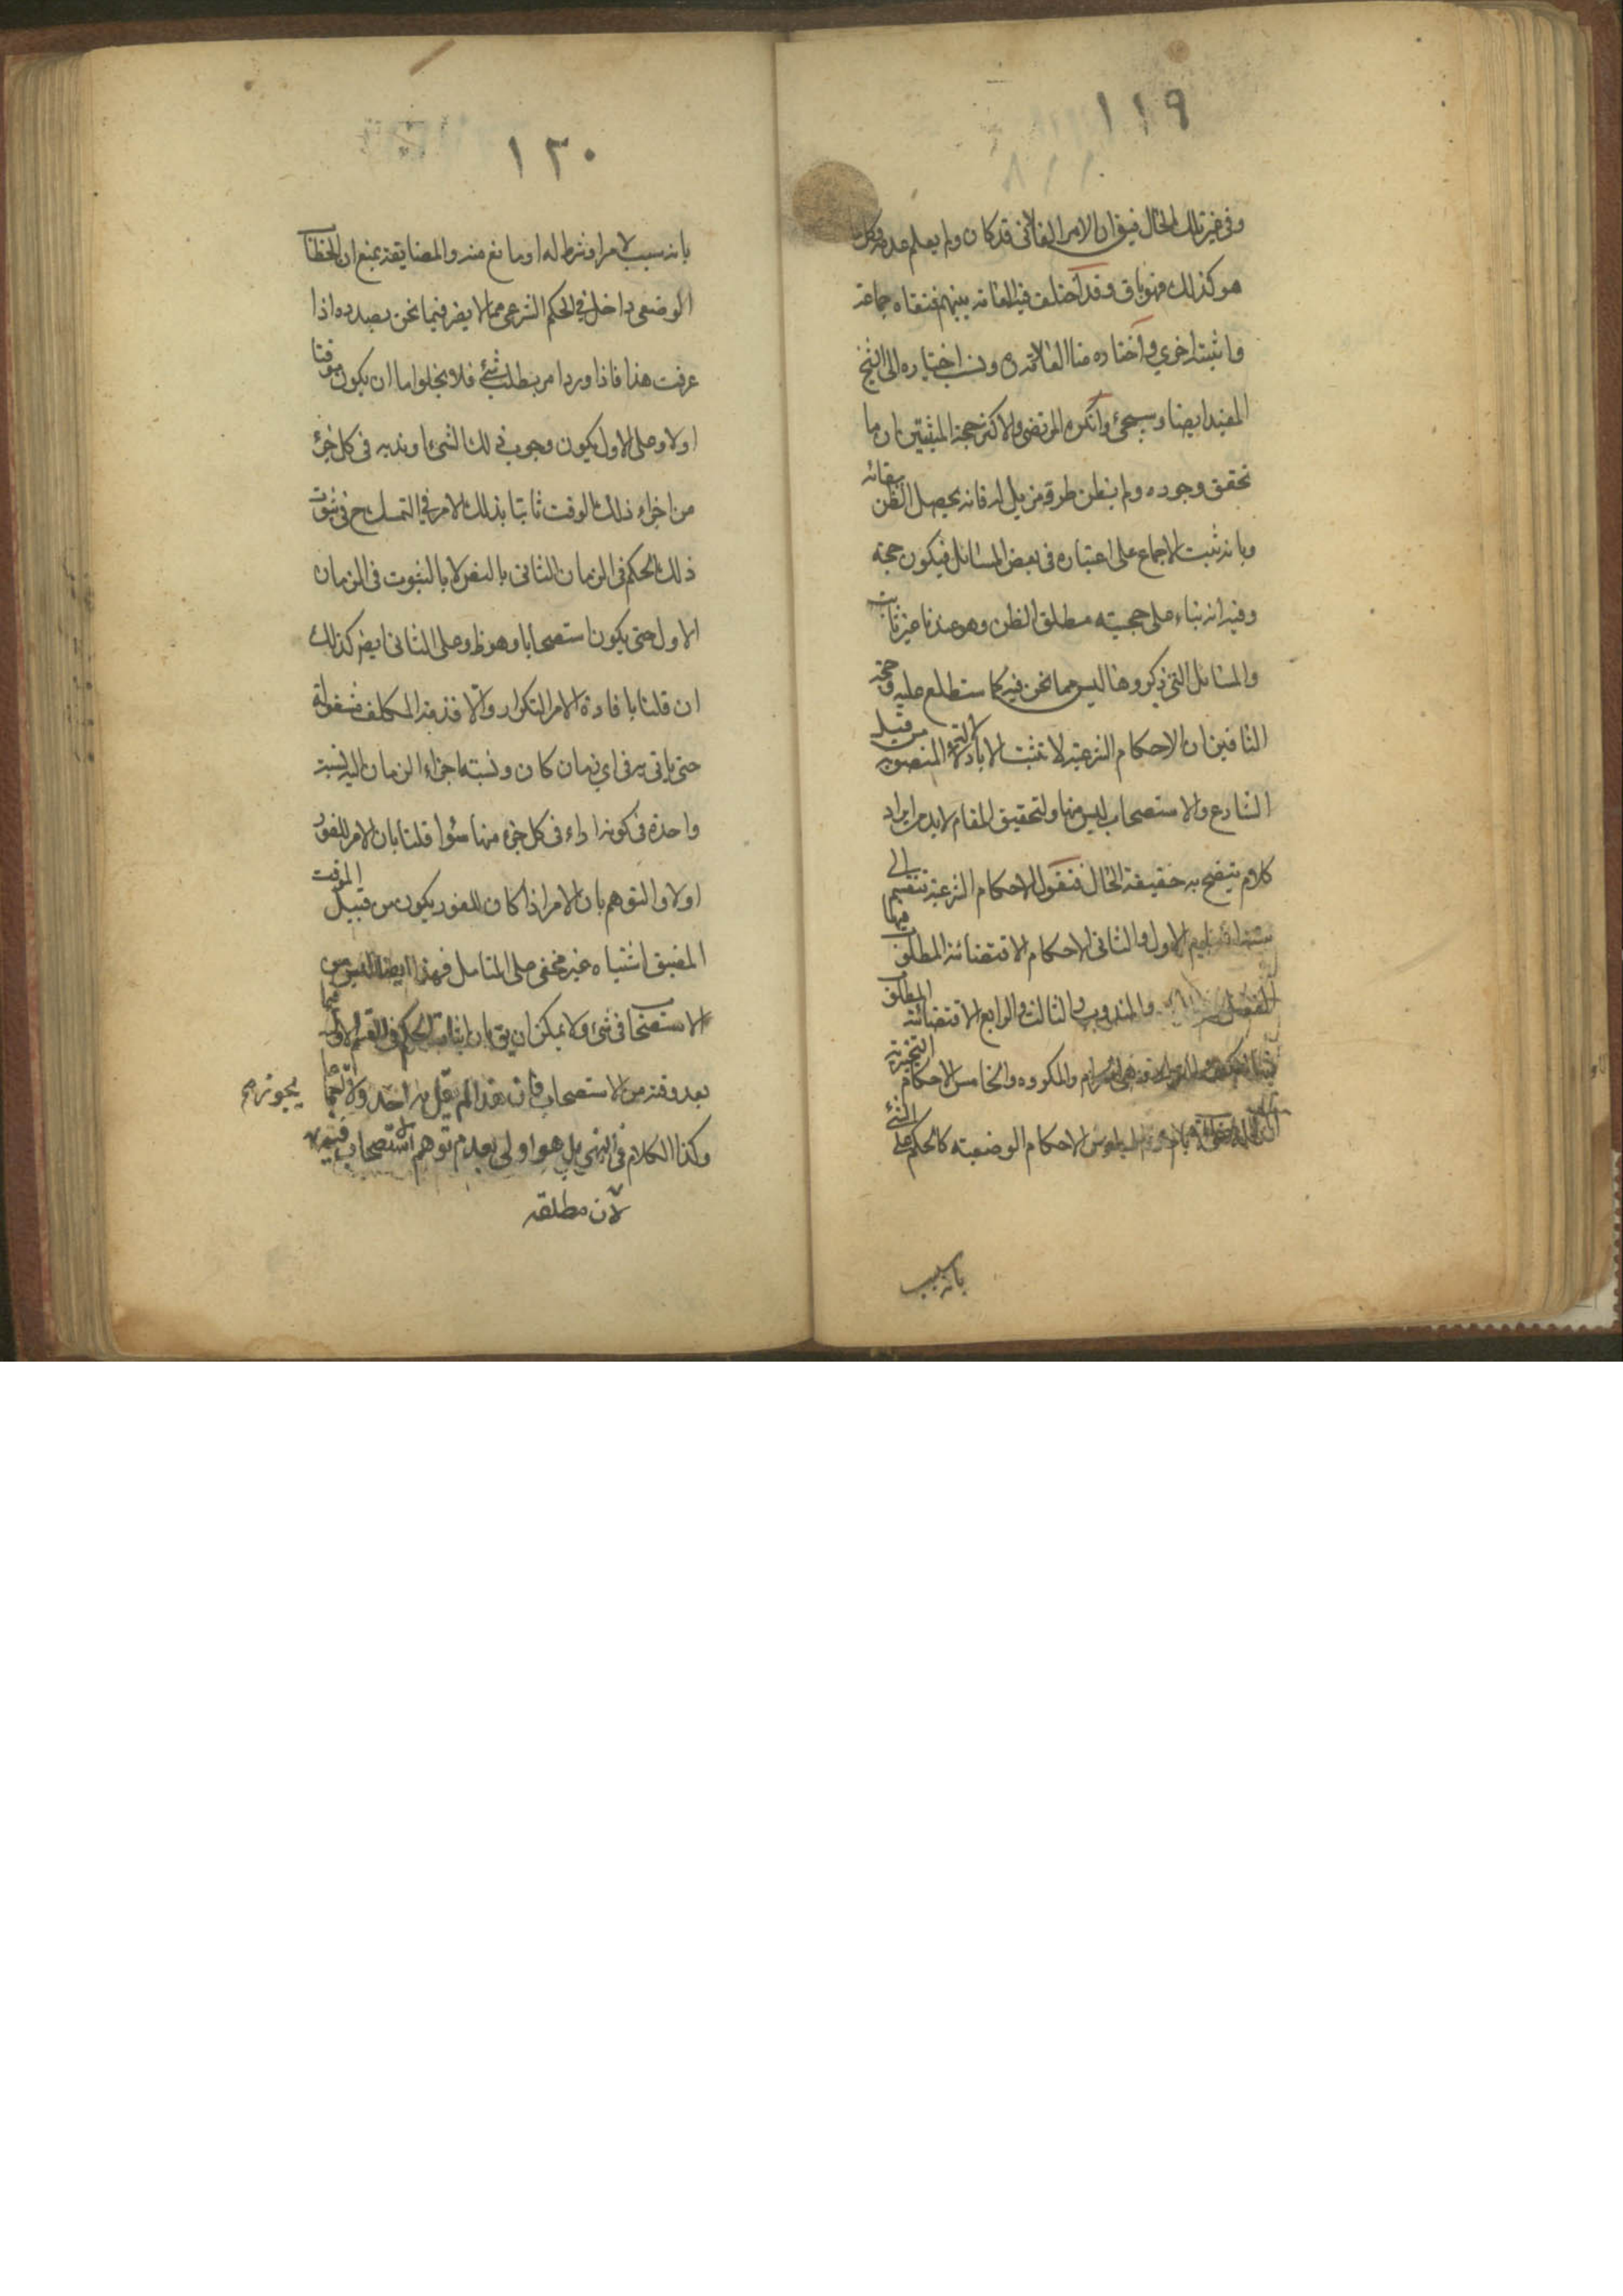 ١١٩
وفى غير تلك الحال فيق ان الامر الفلانى قد كان ولم يعلم عدمه وكل ما
هو كذلك فهو باق وقد اختلف فيه العامة بينهم فنفاه جماعة
واثبته اخرى واختاره منا العلامة ره ونسب اختياره الى الشيخ
المفيد ايضا وسيجئ وانكره المرتضى والاكثر حجة المثبتين ان ما
تحقق وجوده ولم يظن طرو مزيل له فانه يحصل الظن ببقائه
وبانه ثبت الاجماع على اعتباره فى بعض المسائل فيكون حجة
وفيه انه بناء على حجية مطلق الظن وهو عندنا غير ثابت
والمسائل التى ذكروها ليس مما نحن فيه كما ستطلع عليه وحجة
النافين ان الاحكام الشرعية لا تثبت الا بالادلة المنصوبة من قبل
الشارع والاستصحاب ليس منها ولتحقيق المقام لا بد من ايراد
كلام يتضح به حقيقة الحال فنقول الاحكام الشرعية تنقسم الى
ستة اقسام الاول والثانى الاحكام الاقتضائية المطلوب فيها
الفعل والمندوب والثالث والرابع الاقتضائية المطلوب
فيها الكف والترك وهى الحرام والمكروه والخامس الاحكام التخييرية
الاحكام الوضعية كالحكم على الشئ
بانه سبب
١٣٠
بانه سبب لامر او شرط له او مانع منه والمضايقة بمنع ان الخطاب
الوضعى داخل فى الحكم الشرعى مما لا يضر فيما نحن بصدده اذا
عرفت هذا فاذا ورد امر بطلب شئ فلا يخلو اما ان يكون موقتا
اولا وعلى الاول يكون وجوب ذلك الشئ او ندبه فى كل جزء
من اجزاء ذلك الوقت ثابتا بذلك الامر فالتمسك ح فى ثبوت
ذلك الحكم فى الزمان الثانى بالنص لا بالثبوت فى الزمان
الاول حتى يكون استصحابا وهو ظ وعلى الثانى ايض كذلك
ان قلنا بافادة الامر التكرار والا فذمة المكلف مشغولة
حتى ياتى به فى اى زمان كان ونسبة اجزاء الزمان اليه نسبة
واحدة فى كونه اداء فى كل جزء منها سواء قلنا بان الامر للفور
اولا والتوهم بان الامر اذا كان للفور يكون من قبيل الموقت
المضيق اشتباه غير مخفى على المتامل فهذا ايضا ليس من
الاستصحاب فى شئ ولا يمكن ان يق بان اثبات الحكم فى القسم الاول فيما
بعد وقته من الاستصحاب فان هذا لم يقل به احد ولا يجوز اجماعا
وكذا الكلام فى النهى بل هو اولى بعدم توهم الاستصحاب فيه
لان مطلقه